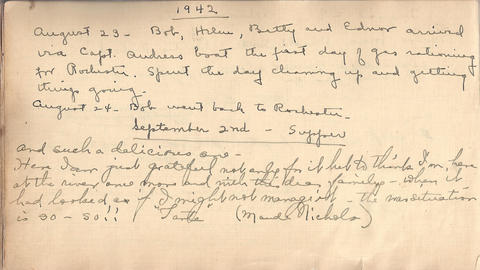 1942
August 23 - Bob, Hilen, Betty and Ednor arrived
via Capt. Andress boat the first day of gas rationing
for Rochester. Spent the day cleaning up and getting
things going.
August 24 - Bob went back to Rochester.
September 2nd - Supper
and such a delicious one -
Here I am just grateful not only for it but to think I'm here
at the river once more and with the dear family - when it
had looked as if I might not manage it - the war situation
is so - so!! (Maude Nichols)